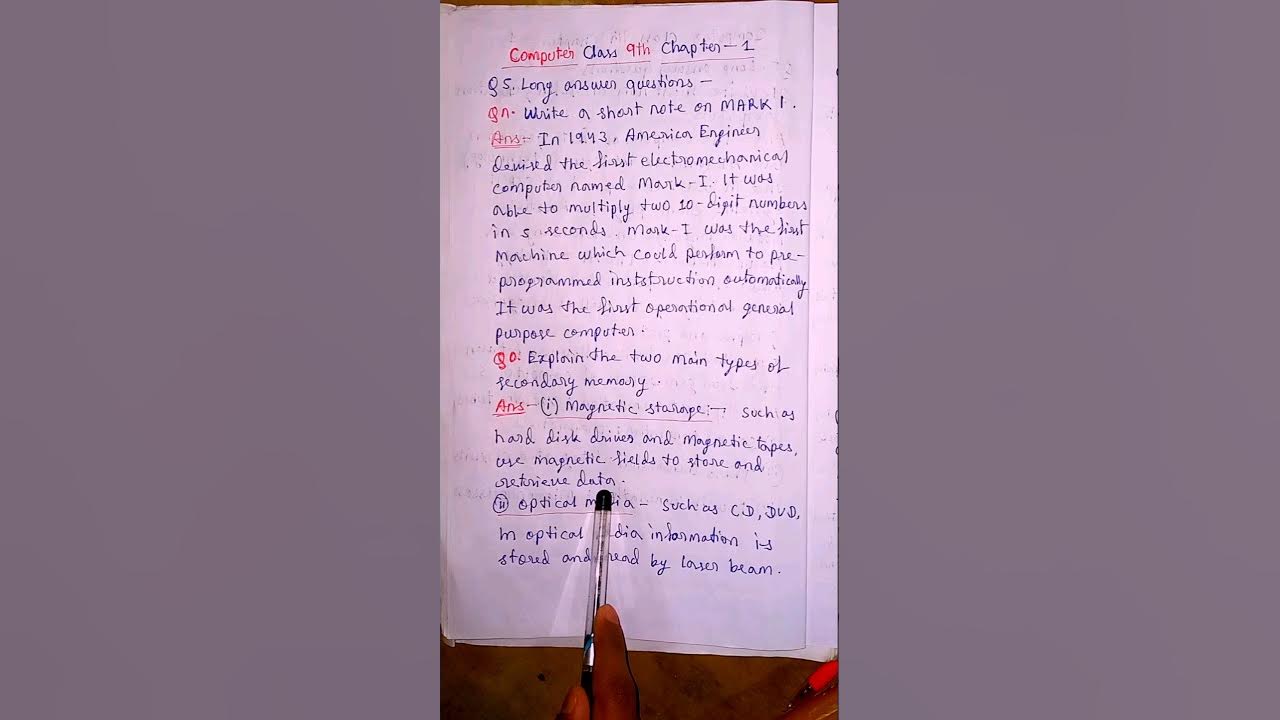 Computer Class 9th Chapter-1
Q5. Long answer questions -
Qn. Write a short note on MARK I.
Ans:- In 1943, America Engineer
devised the first electromechanical
computer named Mark-I. It was
able to multiply two 10-digit numbers
in 5 seconds. Mark-I was the first
machine which could perform to pre-
programmed inststruction automatically
It was the first operational general
purpose computer.
Qo. Explain the two main types of
secondary memory.
Ans-(i) Magnetic starage:- such as
hard disk drives and magnetic tapes,
use magnetic fields to store and
retrieve data.
(ii) optical - such as CD, DVD,
In optical information is
stored and read by laser beam.